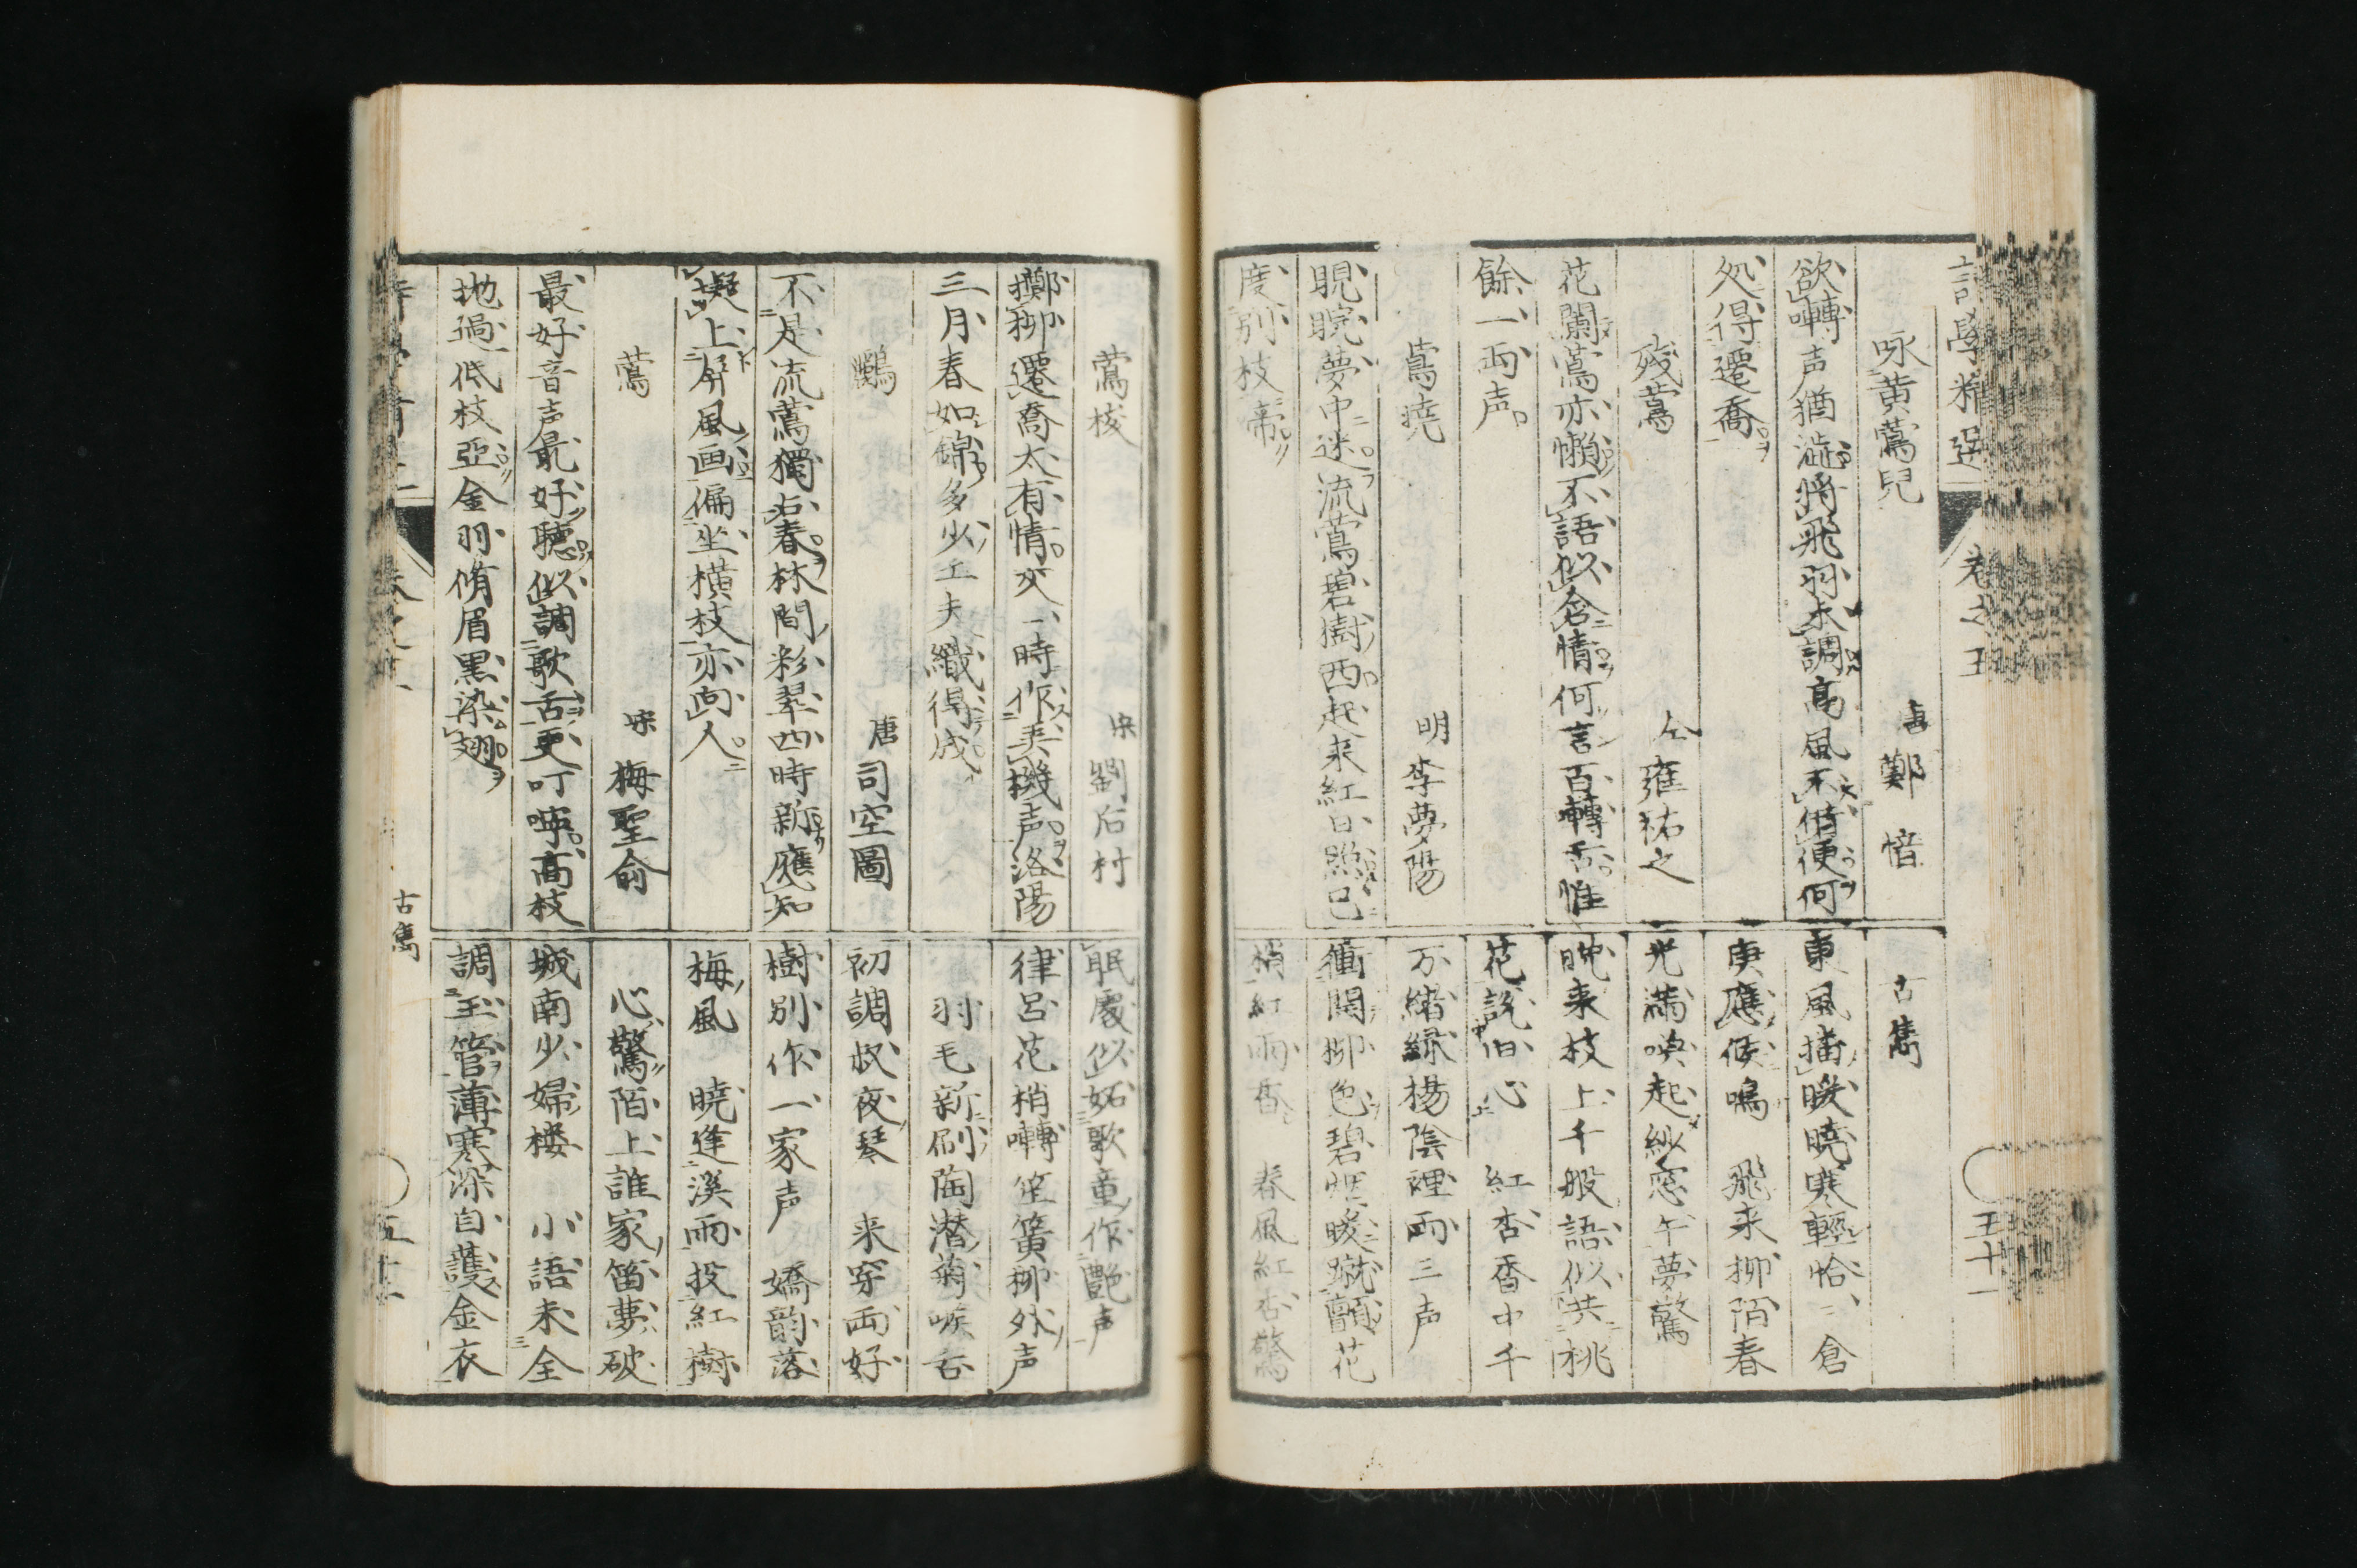 詩學精選 卷之五 五十一
咏黄鶯兒 唐 鄭愔
欲囀声猶澁将飛羽未調高風不借便何
処得遷喬
残鶯 仝 雍祐之
花闌鶯亦懶不語似含情何言百轉舌惟
餘一両声
鶯曉 明 李夢陽
睍睆夢中迷流鶯碧樹西起来紅日照已
度別枝啼
古雋
東風播暖曉寒輕恰〻倉
庚應候鳴 飛来柳陌春
光満喚起紗窓午夢驚
晩来枝上千般語似共桃
花説旧心 紅杏香中千
万緒緑楊陰裡両三声
衝開柳色碧烟暖蹴顫花
梢紅雨香 春風紅杏驚
鶯梭 宋 劉后村
擲柳遷喬太有情交一時作弄機声洛陽
三月春如錦多少工夫織得成
鸝 唐 司空圖
不是流鶯獨占春林間彩翠四時新應知
擬上屏風画偏坐横枝亦向人
鶯 宋 梅聖俞
最好音声最好聴似調歌舌更叮嚀高枝
抛過低枝亞金羽脩眉黒染翅
眠處似妬歌童作艶声
律呂花梢囀笙簧柳外声
羽毛新刷陶潜菊喉舌
初調叔夜琴 来穿両好
樹別作一家声 嬌韵落
梅風 曉逢溪雨投紅樹
心驚陌上誰家笛夢破
城南少婦楼 小語未全
調玉管薄寒深自護金衣
古雋